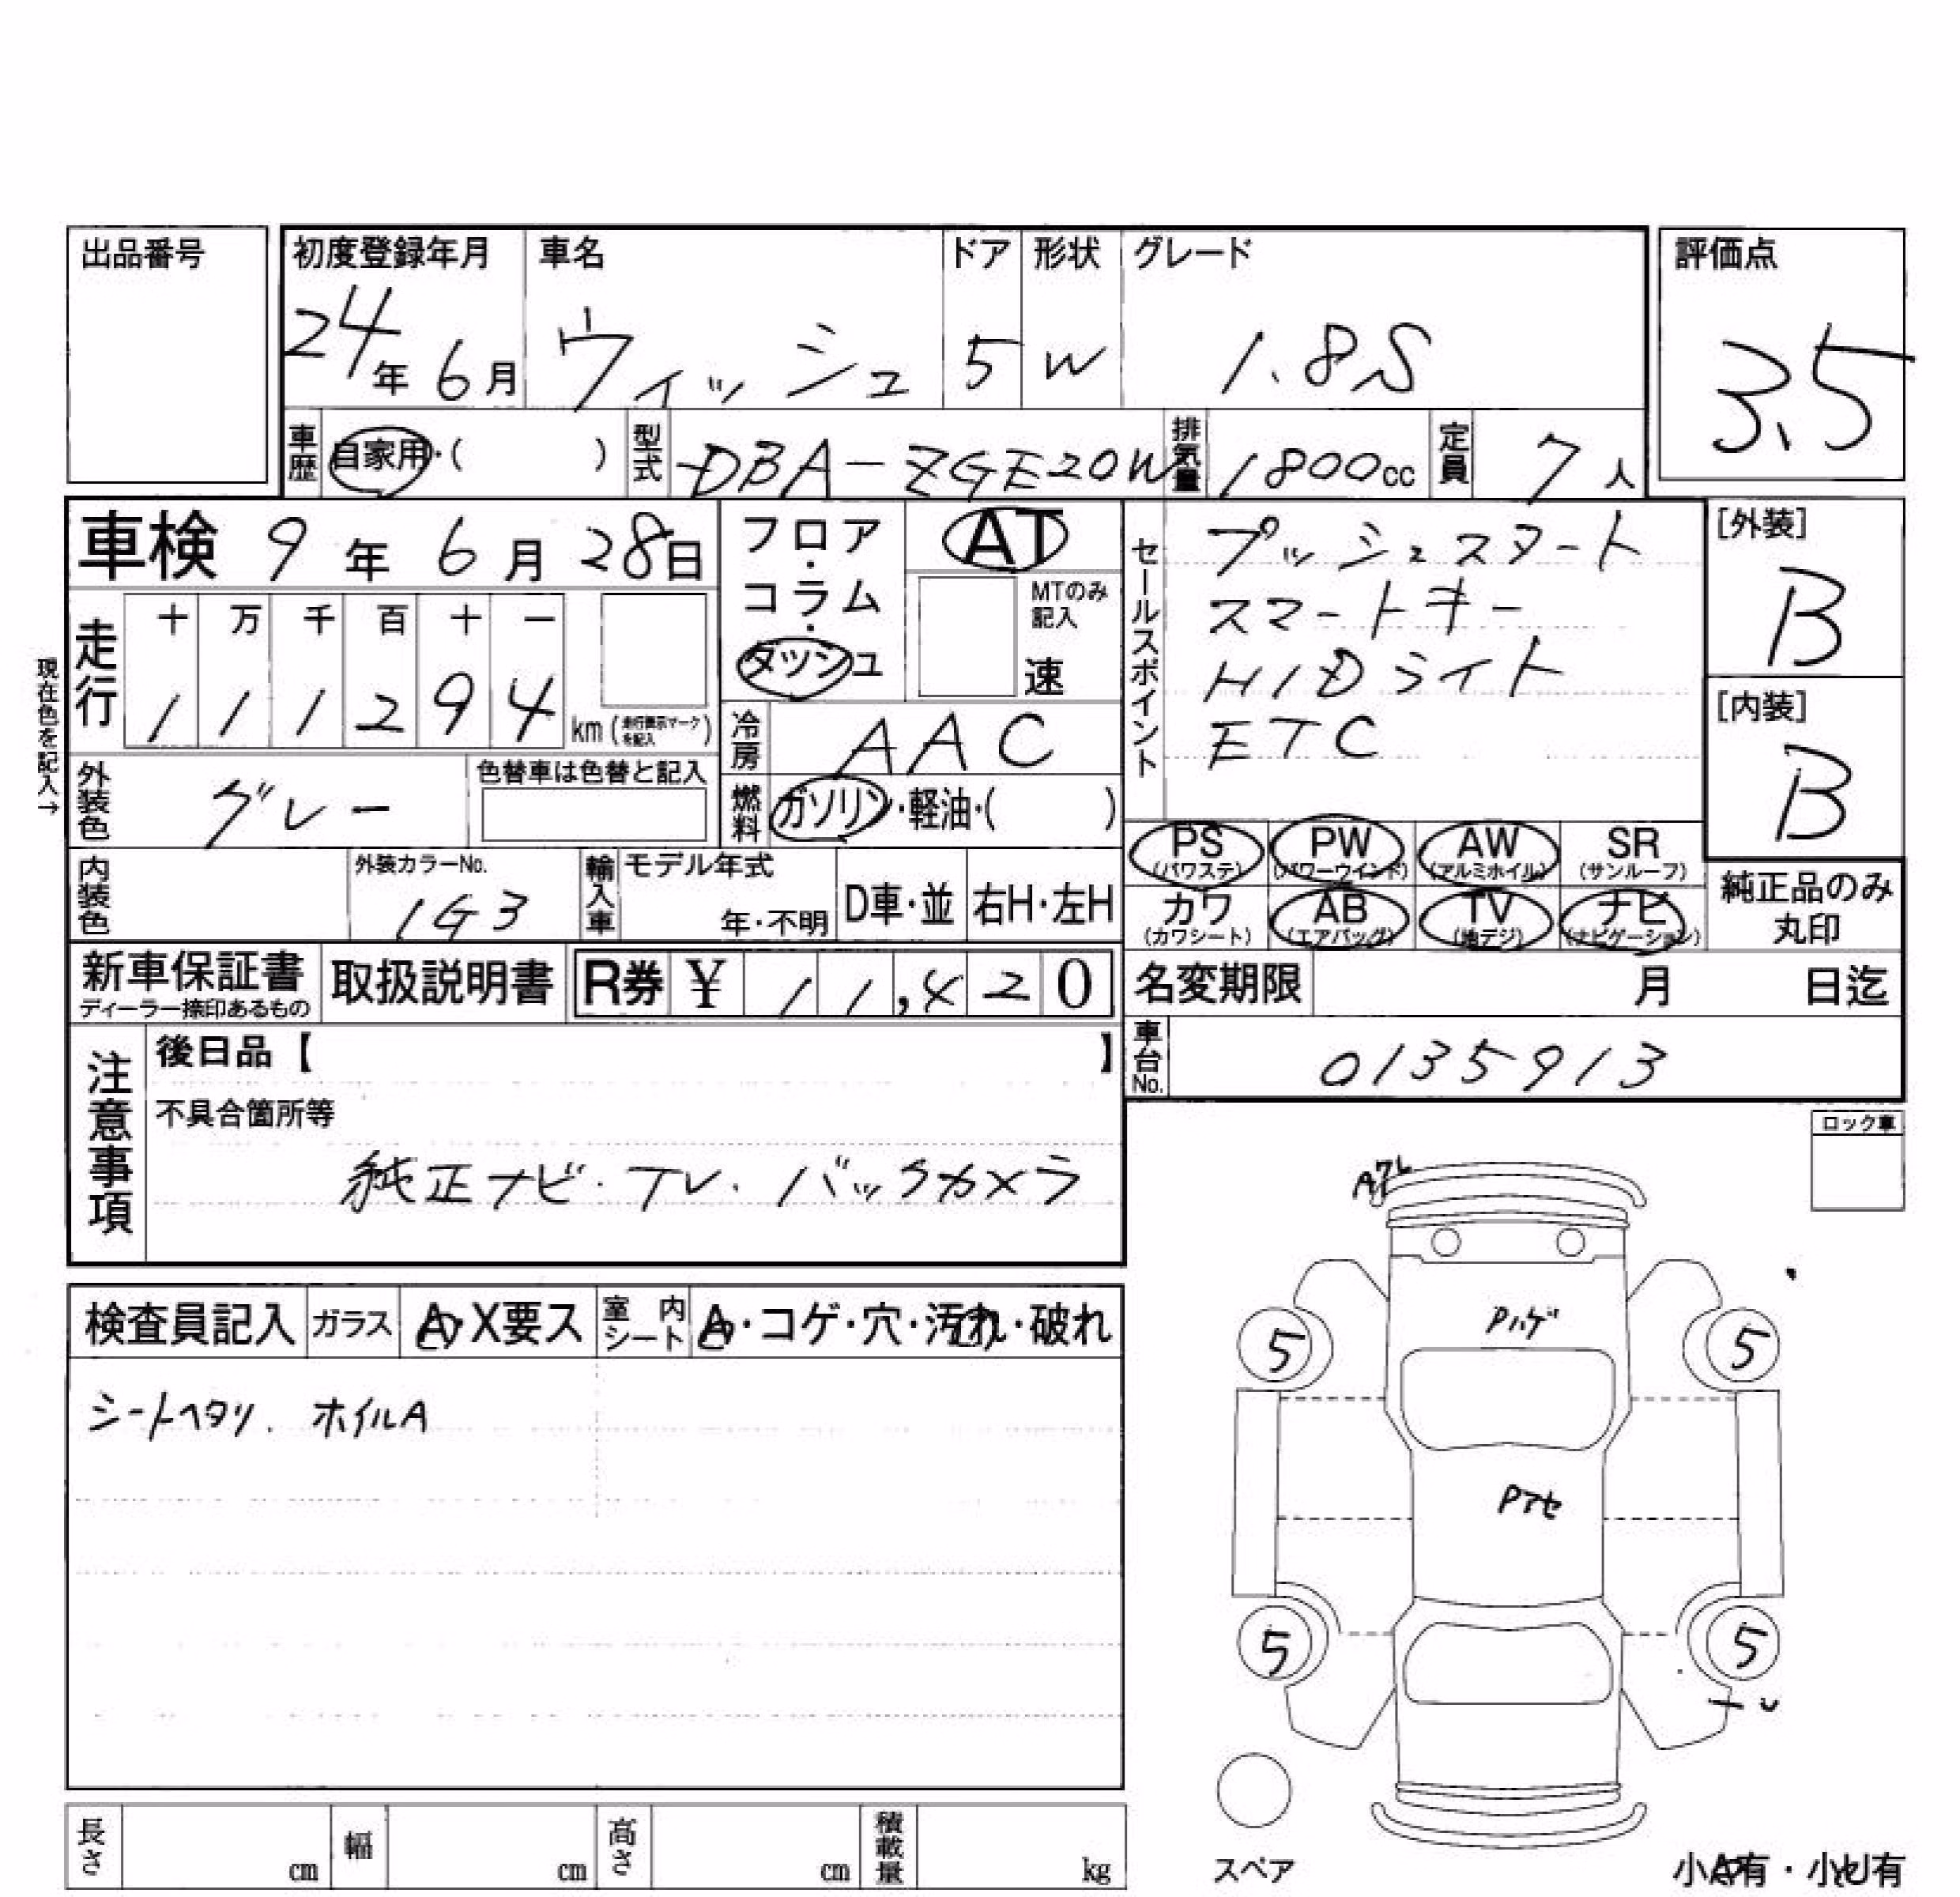 出品番号
初度登録年月 車名 ドア 形状 グレード 評価点
24年 6月 ウィッシュ 5 W 1.8S 3.5
車歴 自家用・( ) 型式 DBA-ZGE20W 排気量 1800cc 定員 7人
車検 9年 6月 28日
フロア・コラム・ダッシュ
AT
MTのみ記入
速
セールスポイント
プッシュスタート
スマートキー
HIDライト
ETC
[外装]
B
[内装]
B
現在色を記入→
走行 十 万 千 百 十 一
1 1 1 2 9 4 km (走行表示マークを記入)
冷房 AAC
外装色 グレー 色替車は色替と記入
燃料 ガソリン・軽油・( )
PS (パワステ) PW (パワーウインド) AW (アルミホイル) SR (サンルーフ)
カワ (カワシート) AB (エアバッグ) TV (地デジ) ナビ (ナビゲーション)
純正品のみ丸印
内装色 外装カラーNo. 1G3 輸入車 モデル年式 年・不明 D車・並 右H・左H
新車保証書 ディーラー捺印あるもの 取扱説明書 R券 ¥ 11,420
名変期限 月 日迄
車台No. 0135913
注意事項
後日品【 】
不具合箇所等
純正ナビ・TV・バックカメラ
ロック車
検査員記入 ガラス A・X要ス 室内シート A・コゲ・穴・汚れ・破れ
シートヘタリ. ホイルA
Pハゲ
5 5
Pアセ
5 5
スペア
長さ cm 幅 cm 高さ cm 積載量 kg
小A有・小U有